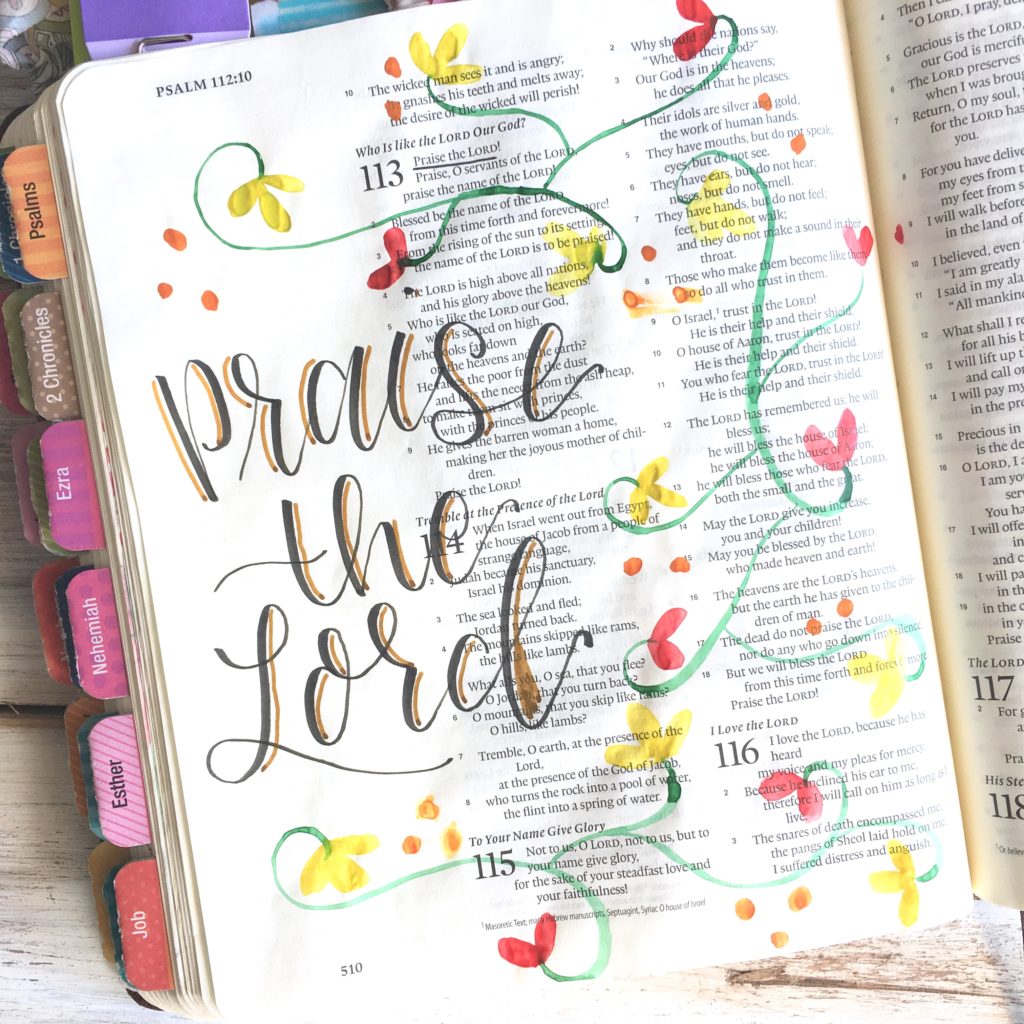 PSALM 112:10
10 The wicked man sees it and is angry;
he gnashes his teeth and melts away;
the desire of the wicked will perish!
Who Is like the LORD Our God?
113 Praise the LORD!
Praise, O servants of the LORD,
praise the name of the LORD!
2 Blessed be the name of the LORD
from this time forth and forevermore!
3 From the rising of the sun to its setting,
the name of the LORD is to be praised!
4 The LORD is high above all nations,
and his glory above the heavens!
5 Who is like the LORD our God,
who is seated on high,
who looks far down
on the heavens and the earth?
7 He raises the poor from the dust
and lifts the needy from the ash heap,
to make them sit with princes,
with the princes of his people.
9 He gives the barren woman a home,
making her the joyous mother of chil-
dren.
Praise the LORD!
Tremble at the Presence of the Lord
114 When Israel went out from Egypt,
the house of Jacob from a people of
strange language,
2 Judah became his sanctuary,
Israel his dominion.
3 The sea looked and fled;
Jordan turned back.
4 The mountains skipped like rams,
the hills like lambs.
What ails you, O sea, that you flee?
O Jordan, that you turn back?
6 O mountains, that you skip like rams?
O hills, like lambs?
7 Tremble, O earth, at the presence of the
Lord,
at the presence of the God of Jacob,
8 who turns the rock into a pool of water,
the flint into a spring of water.
To Your Name Give Glory
115 Not to us, O LORD, not to us, but to
your name give glory,
for the sake of your steadfast love and
your faithfulness!
2 Why should the nations say,
"Where is their God?"
3 Our God is in the heavens;
he does all that he pleases.
4 Their idols are silver and gold,
the work of human hands.
5 They have mouths, but do not speak;
eyes, but do not see.
6 They have ears, but do not hear;
noses, but do not smell.
7 They have hands, but do not feel;
feet, but do not walk;
and they do not make a sound in their
throat.
8 Those who make them become like them;
so do all who trust in them.
9 O Israel,¹ trust in the LORD!
He is their help and their shield.
10 O house of Aaron, trust in the LORD!
He is their help and their shield.
11 You who fear the LORD, trust in the LORD!
He is their help and their shield.
12 The LORD has remembered us; he will
bless us;
he will bless the house of Israel;
he will bless the house of Aaron;
13 he will bless those who fear the LORD,
both the small and the great.
14 May the LORD give you increase,
you and your children!
15 May you be blessed by the LORD,
who made heaven and earth!
16 The heavens are the LORD's heavens,
but the earth he has given to the chil-
dren of man.
17 The dead do not praise the LORD,
nor do any who go down into silence.
18 But we will bless the LORD
from this time forth and forevermore.
Praise the LORD!
I Love the LORD
116 I love the LORD, because he has
heard
my voice and my pleas for mercy.
2 Because he inclined his ear to me,
therefore I will call on him as long as I
live.
3 The snares of death encompassed me;
the pangs of Sheol laid hold on me;
I suffered distress and anguish.
¹ Masoretic Text; many Hebrew manuscripts, Septuagint, Syriac O house of Israel
510
praise
the
Lord
Psalms
2 Chronicles
Ezra
Nehemiah
Esther
Job
4 Then I
"O LORD, I pray,
5 Gracious is the LORD,
our God is
6 The LORD preserves
when I was
7 Return, O my soul,
for the LORD has
you.
8 For you have
my eyes from
my feet from
9 I will walk before
in the land of
10 I believed, even
"I am greatly
11 I said in my
"All
12 What shall I
for all his
13 I will lift up
and call
14 I will pay
in the
15 Precious in
is the
16 O LORD, I
I am
You
17 I will
and
18 I will
in the
19 in the
in
Praise
The LORD
117
2 For
Praise
His
118
¹ Or